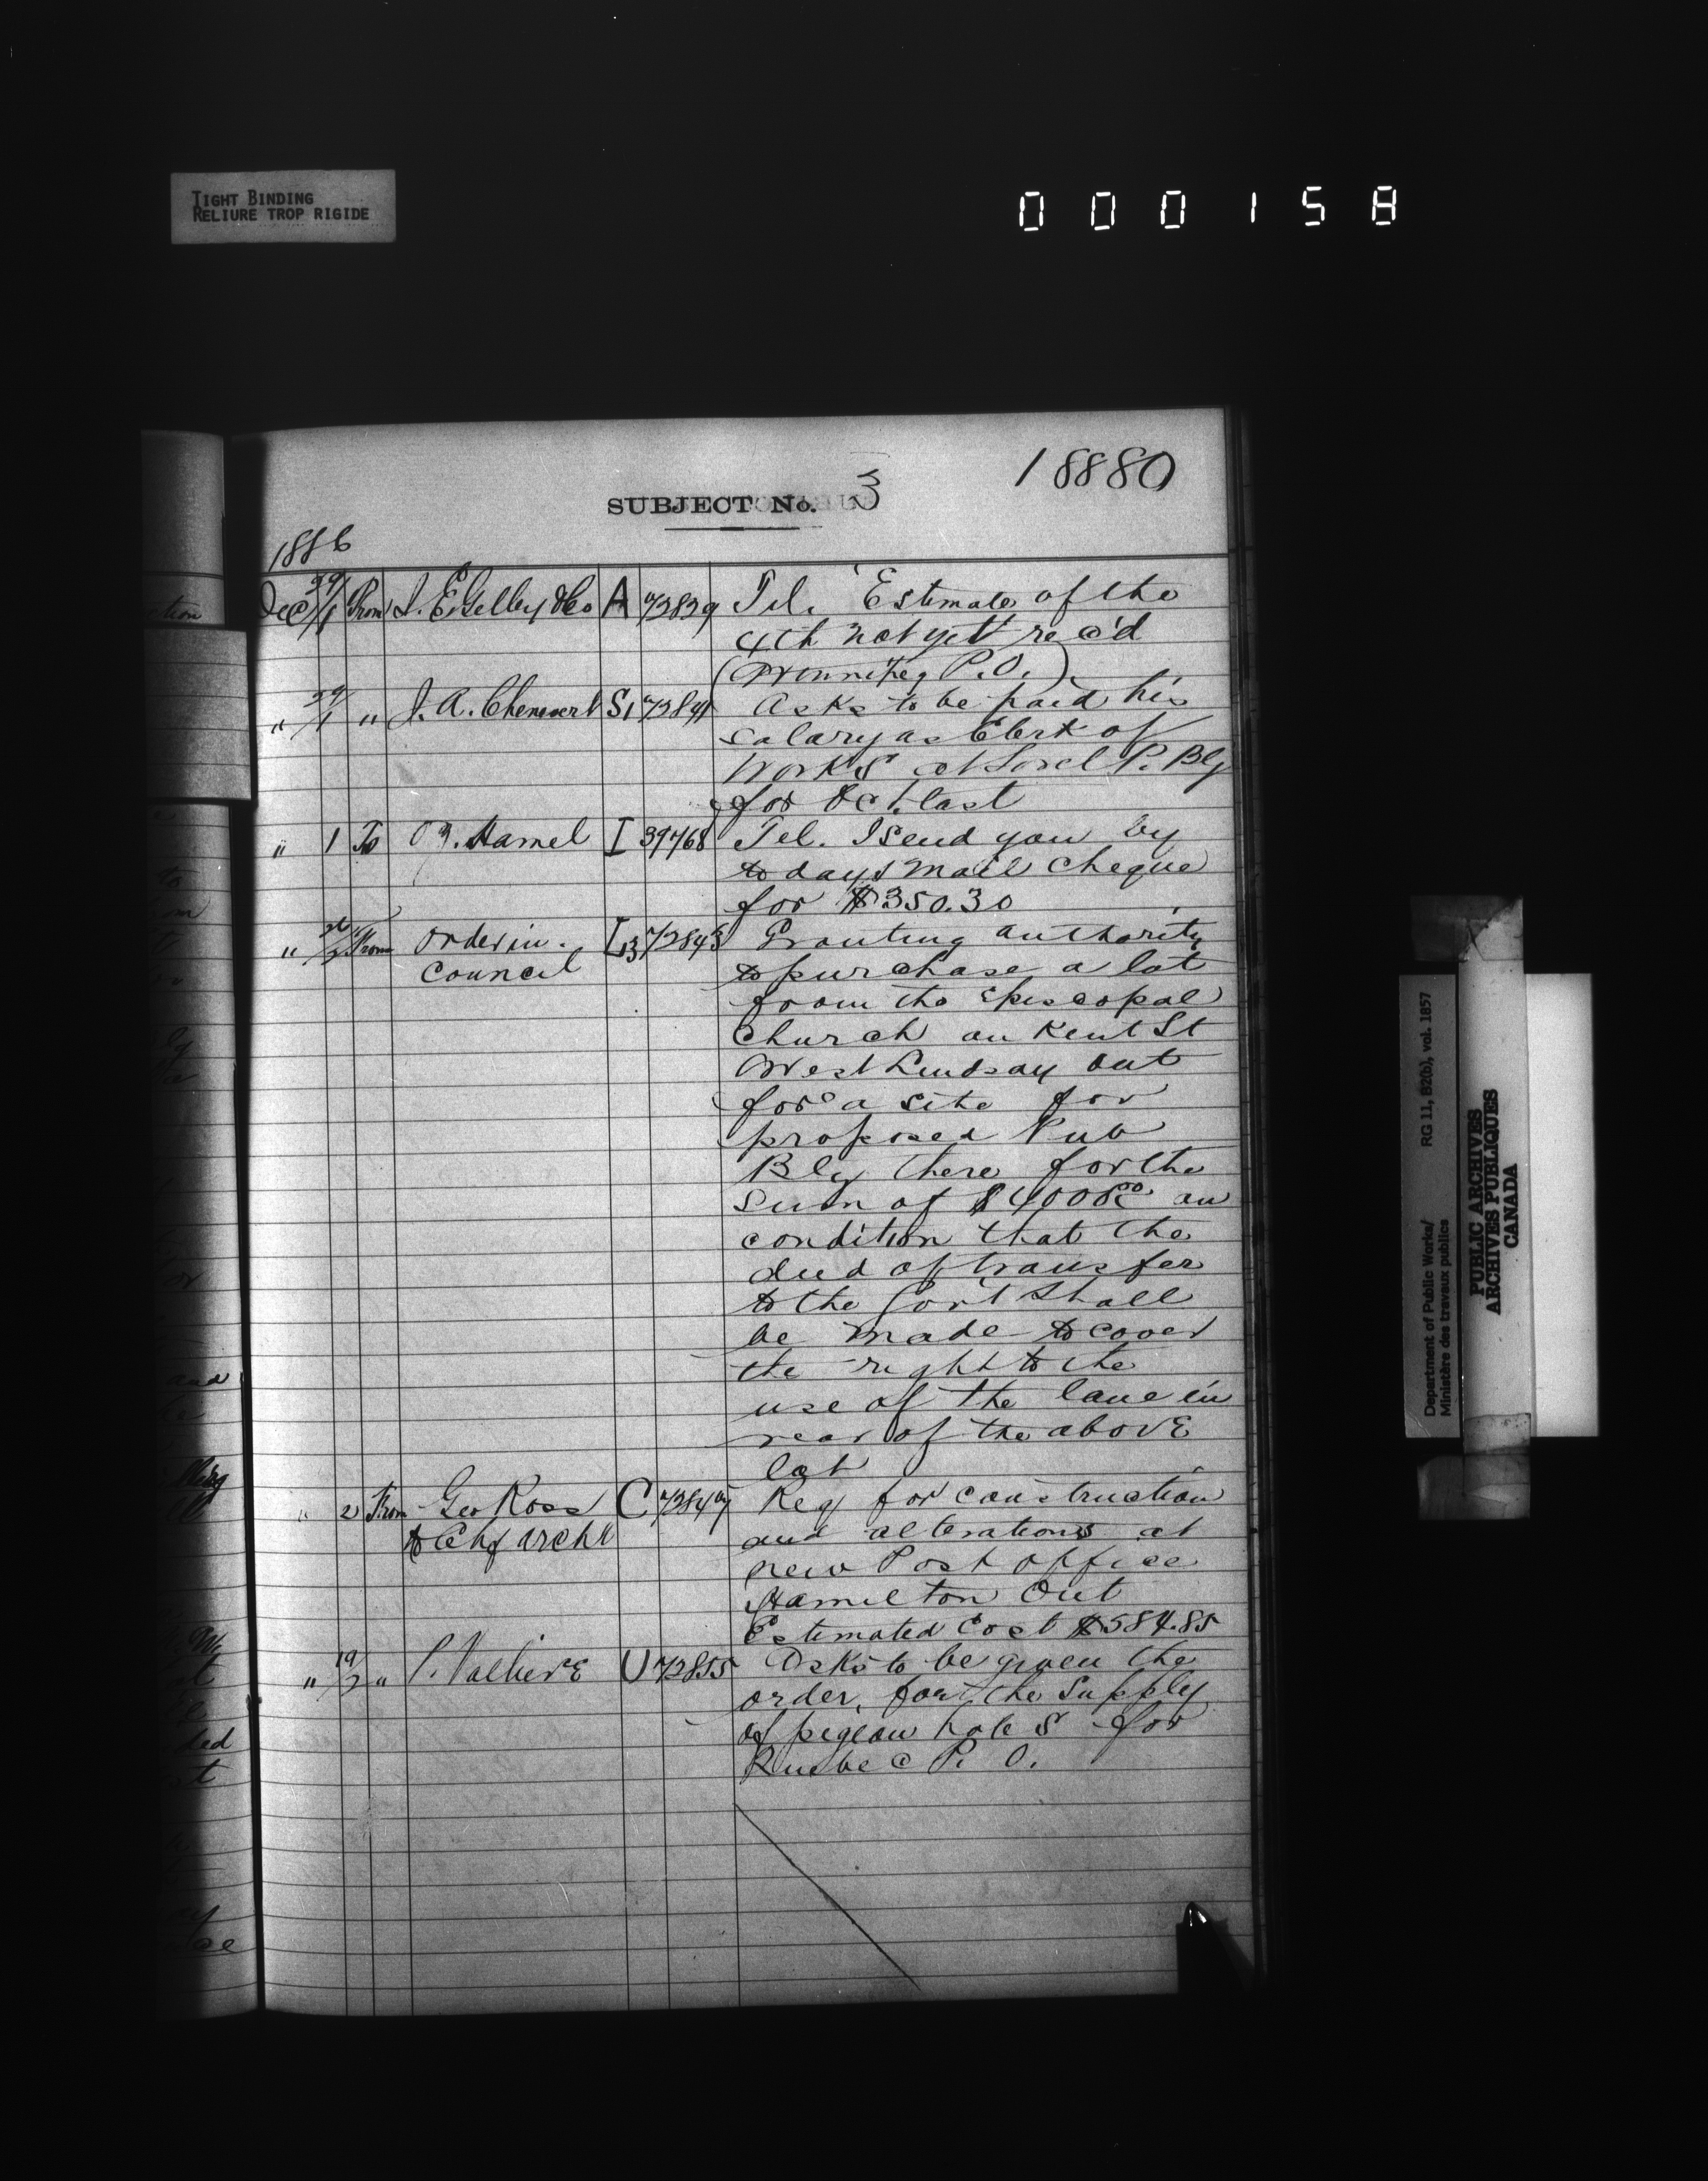 TIGHT BINDING
RELIURE TROP RIGIDE
000158
18880
SUBJECT No. 3
1886
Dec 29/1 From J. E. Gelley & Co A 72829 Tel. Estimate of the
4th not yet rec'd
(Winnipeg P.O.)
" 29/1 " J. A. Chenevert S1 72841 Asks to be paid his
salary as Clerk of
Works at Sorel P. Blg
for Oct. last
" 1 To O Z. Hamel I 39768 Tel. I send you by
to days mail cheque
for $350.30
" /2 From Order in. I13 72843 Granting authority
Council to purchase a lot
from the Episcopal
Church on Kent St
West Lindsay Ont
for a site for
proposed Pub
Blg there for the
sum of $4000.00 on
condition that the
deed of transfer
to the Gov't shall
be made to cover
the right to the
use of the lane in
rear of the above
lot
" 2 From Geo Ross C 72847 Req for construction
to Chf archt and alterations at
new Post office
Hamilton Ont
Estimated Cost $584.85
" 19/2 " P. Valliere U 72855 Asks to be given the
order, for the supply
of pigeon holes for
Quebec P. O.
Department of Public Works/ RG 11, B2(b), vol. 1857
Ministère des travaux publics
PUBLIC ARCHIVES
ARCHIVES PUBLIQUES
CANADA